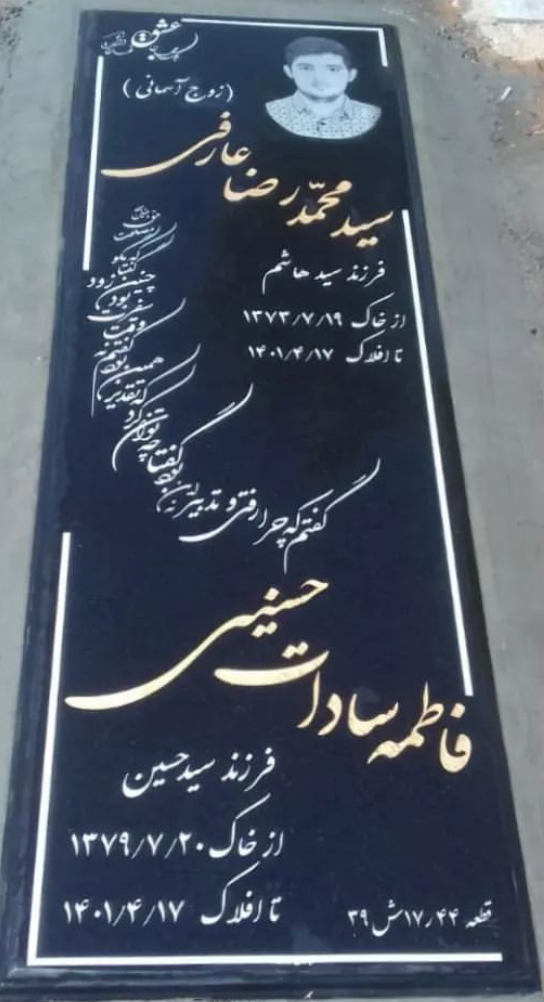 عشق
(زوج آسمانی)
سید محمّد رضا عارفی
فرزند سید هاشم
از خاک ۱۳۷۳/۷/۱۹
تا افلاک ۱۴۰۱/۴/۱۷
گفتم که چرا رفتی و تدبیر تو این بود
گفتا چه توان کرد که تقدیر همین بود
گفتم نه وقت سفرت بود چنین زود
گفتا که مگو
فاطمه سادات حسینی
فرزند سید حسین
از خاک ۱۳۷۹/۷/۲۰
تا افلاک ۱۴۰۱/۴/۱۷
قطعه ۱۷٫۴۴ ش ۳۹